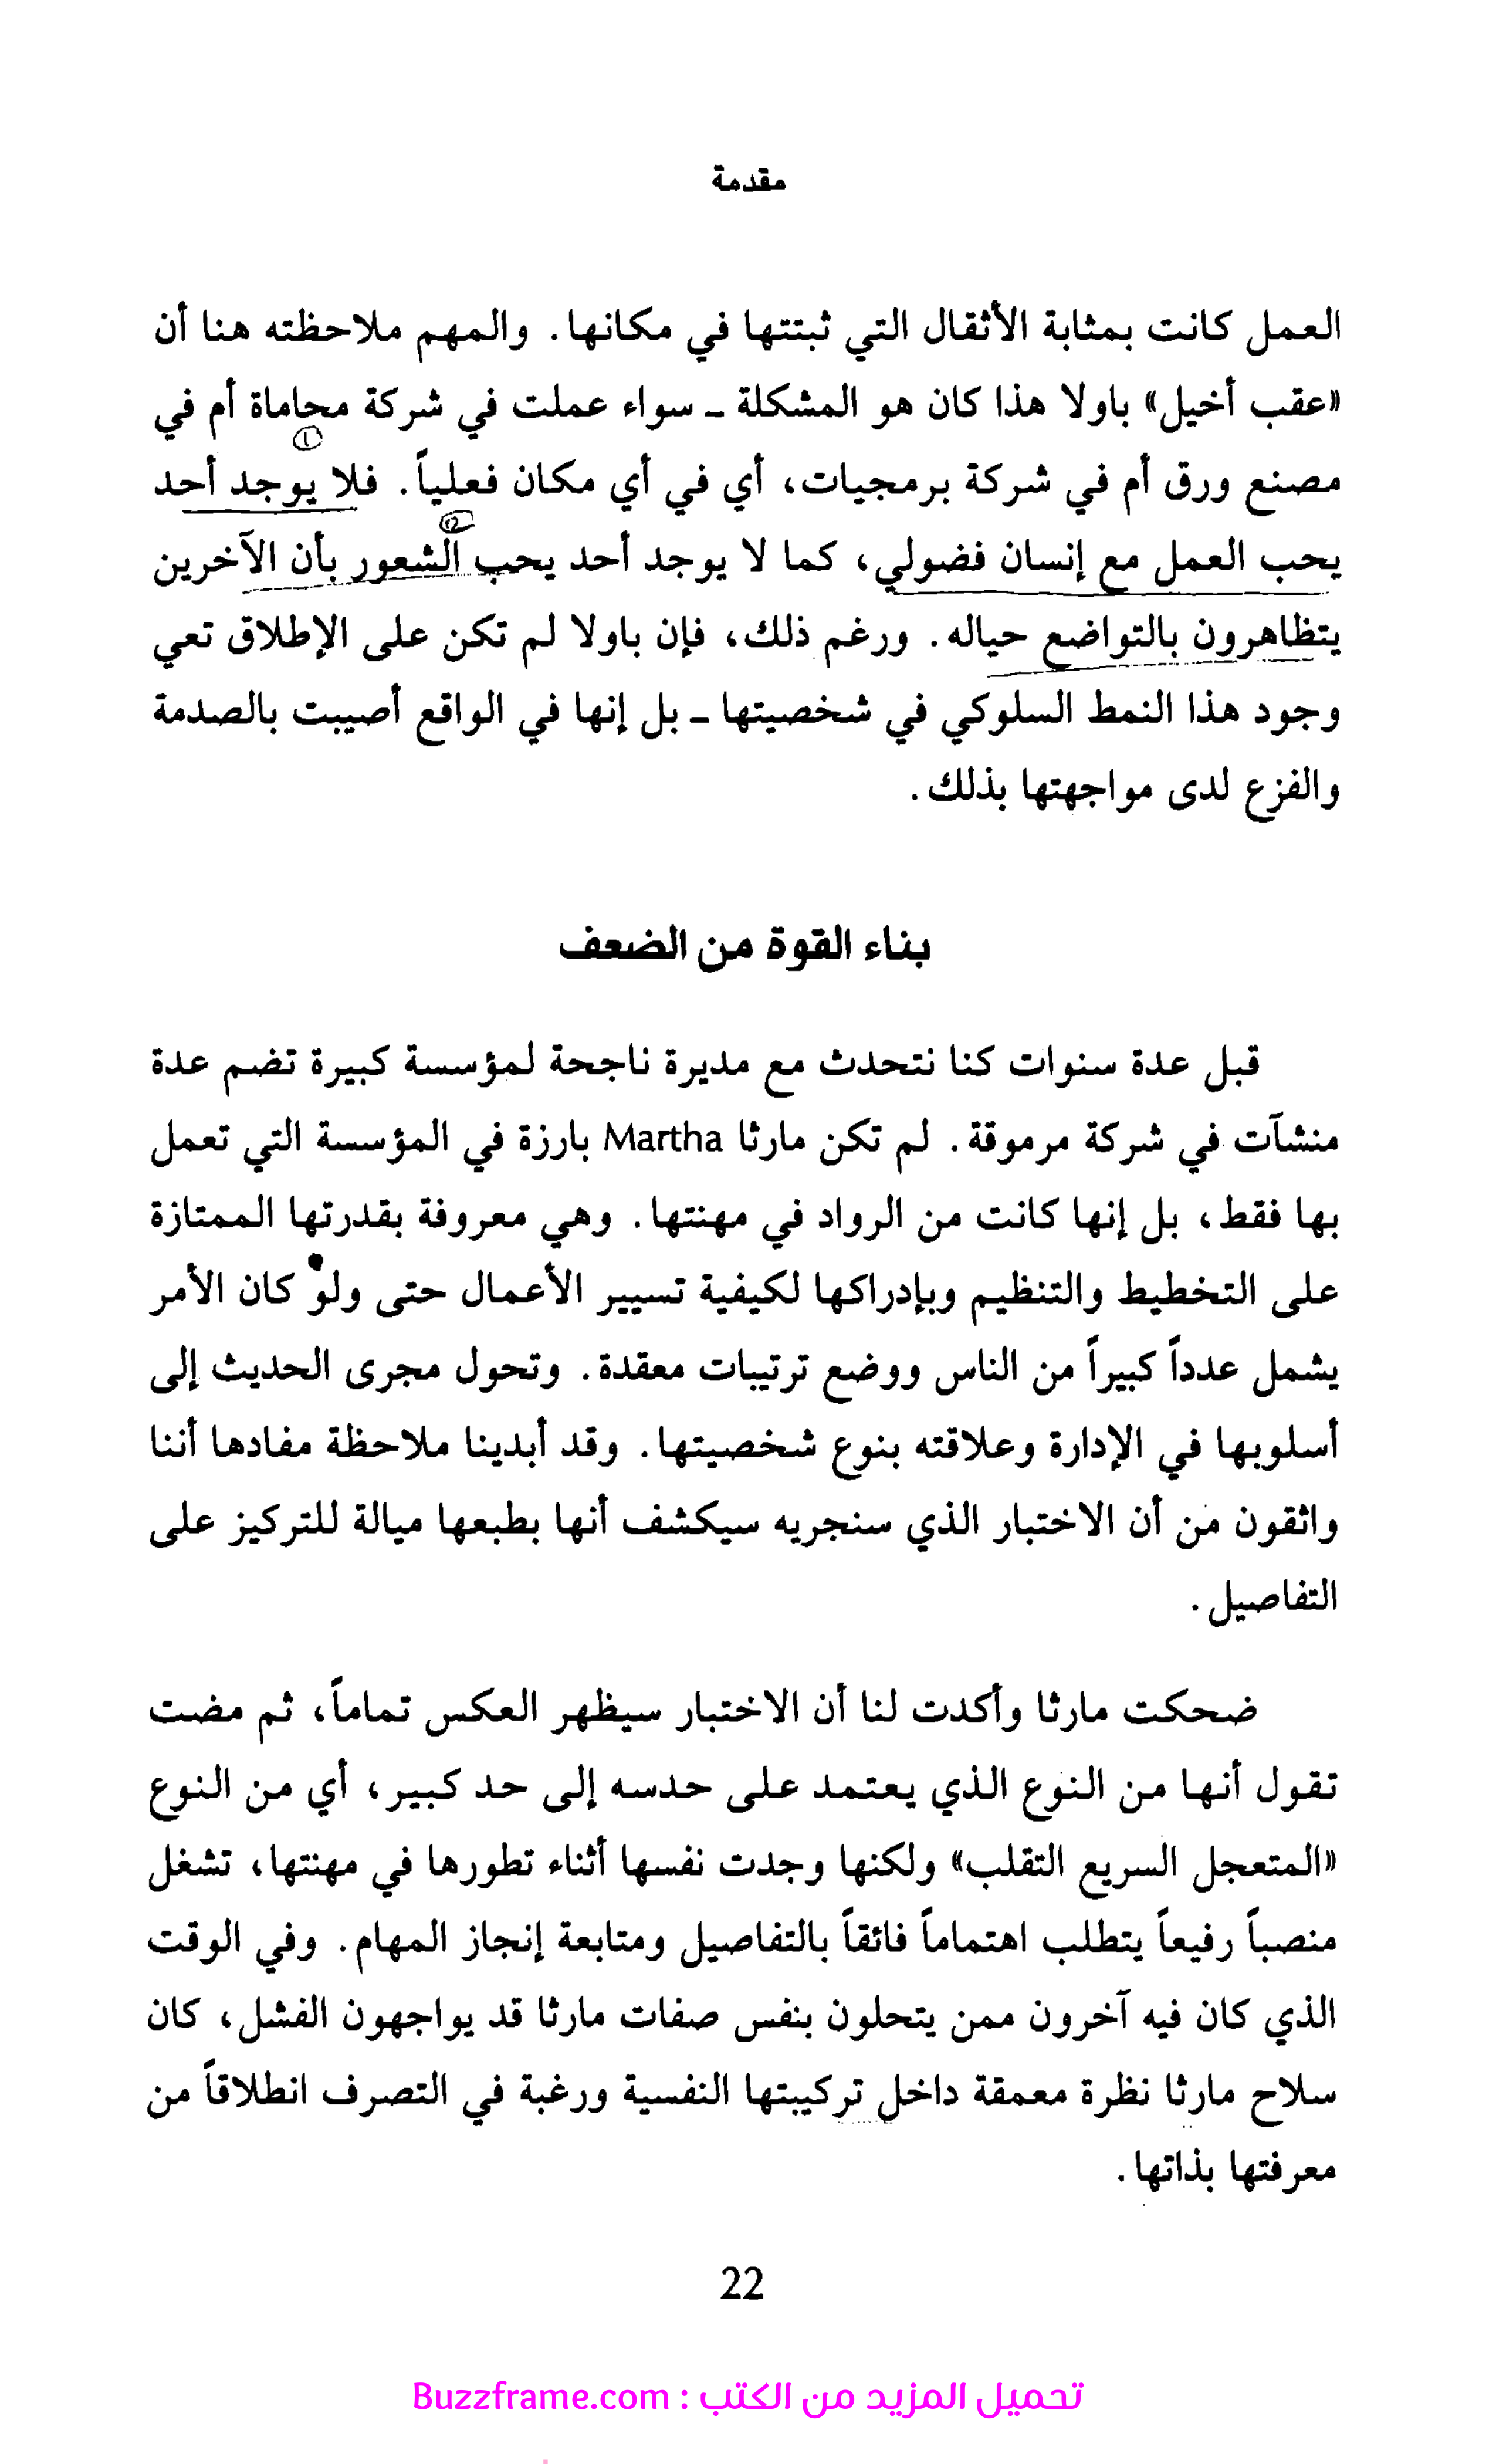 مقدمة
العمل كانت بمثابة الأثقال التي ثبتتها في مكانها. والمهم ملاحظته هنا أن
«عقب أخيل» باولا هذا كان هو المشكلة - سواء عملت في شركة محاماة أم في
①
مصنع ورق أم في شركة برمجيات، أي في أي مكان فعلياً. فلا يوجد أحد
②
يحب العمل مع إنسان فضولي، كما لا يوجد أحد يحب الشعور بأن الآخرين
يتظاهرون بالتواضع حياله. ورغم ذلك، فإن باولا لم تكن على الإطلاق تعي
وجود هذا النمط السلوكي في شخصيتها - بل إنها في الواقع أصيبت بالصدمة
والفزع لدى مواجهتها بذلك.
بناء القوة من الضعف
قبل عدة سنوات كنا نتحدث مع مديرة ناجحة لمؤسسة كبيرة تضم عدة
منشآت في شركة مرموقة. لم تكن مارثا Martha بارزة في المؤسسة التي تعمل
بها فقط، بل إنها كانت من الرواد في مهنتها. وهي معروفة بقدرتها الممتازة
على التخطيط والتنظيم وبإدراكها لكيفية تسيير الأعمال حتى ولو كان الأمر
يشمل عدداً كبيراً من الناس ووضع ترتيبات معقدة. وتحول مجرى الحديث إلى
أسلوبها في الإدارة وعلاقته بنوع شخصيتها. وقد أبدينا ملاحظة مفادها أننا
واثقون من أن الاختبار الذي سنجريه سيكشف أنها بطبعها ميالة للتركيز على
التفاصيل.
ضحكت مارثا وأكدت لنا أن الاختبار سيظهر العكس تماماً، ثم مضت
تقول أنها من النوع الذي يعتمد على حدسه إلى حد كبير، أي من النوع
«المتعجل السريع التقلب» ولكنها وجدت نفسها أثناء تطورها في مهنتها، تشغل
منصباً رفيعاً يتطلب اهتماماً فائقاً بالتفاصيل ومتابعة إنجاز المهام. وفي الوقت
الذي كان فيه آخرون ممن يتحلون بنفس صفات مارثا قد يواجهون الفشل، كان
سلاح مارثا نظرة معمقة داخل تركيبتها النفسية ورغبة في التصرف انطلاقاً من
معرفتها بذاتها.
22
تحميل المزيد من الكتب : Buzzframe.com